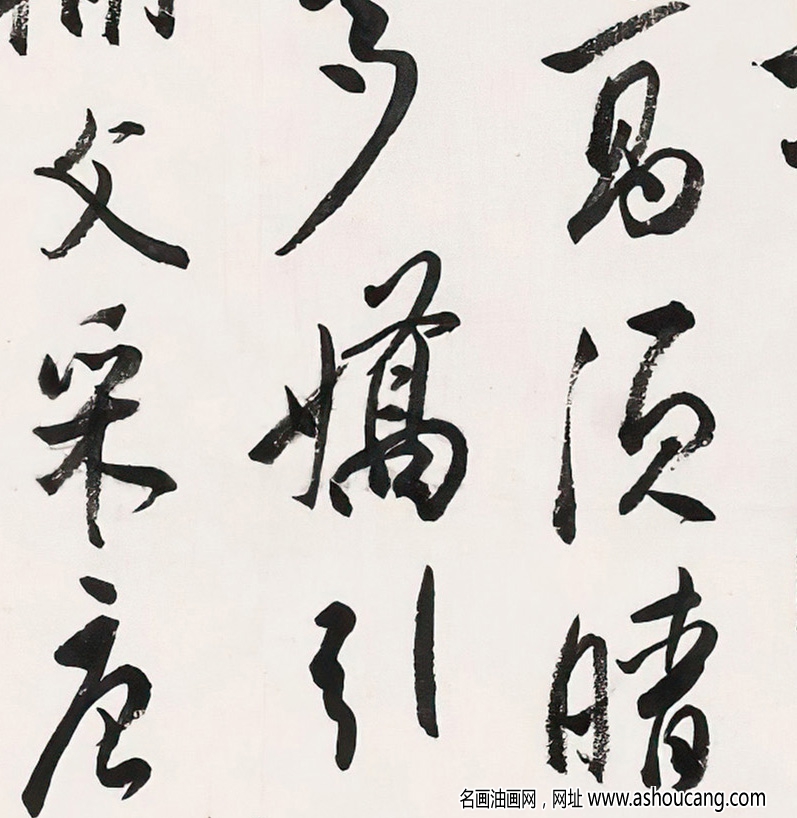 高須晴
多嬌引
文采唐
名画油画网，网址 www.ashoucang.com